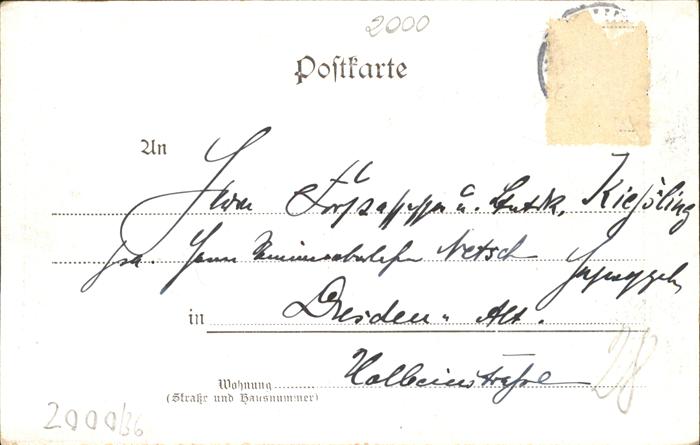 2000
Postkarte
An
Herrn Forstassessor u. Leutn. Kießling
Herrn Netsch
in Dresden - Alt.
Wohnung Holbeinstraße 28
(Straße und Hausnummer)
2000/36